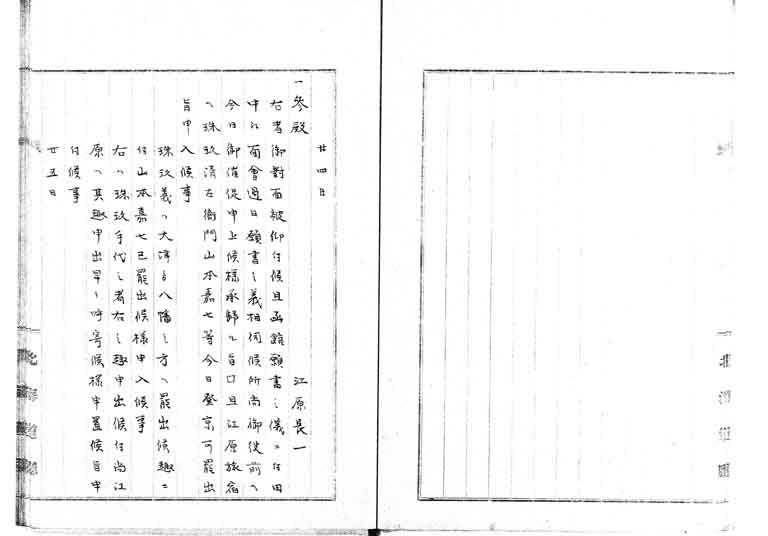 廿四日
一参殿 江原長一
右者御対面被仰付候且函館願書之儀ニ付田
中江面会過日願書之義相伺候所尚御役前ヘ
今日御催促申上候様承帰ル旨口且江原旅宿
ヘ珠玖清左衛門山本嘉七等今日登京可罷出
旨申入候事
珠玖義ヘ大津ゟ八幡之方ヘ罷出候趣ニ
付山本嘉七已罷出候様申入候事
右ヘ珠玖手代之者右之趣申出候付尚江
原ヘ其趣申出早々呼寄候様申置候旨申
付候事
廿五日
北海道